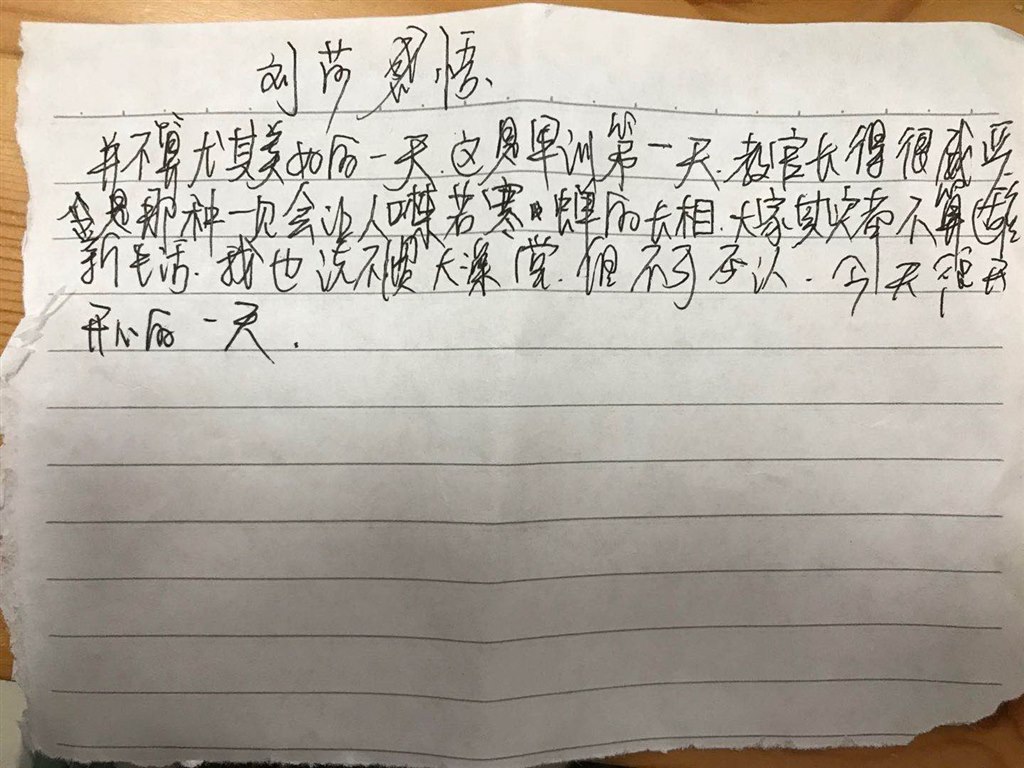 刘莎感悟
并不算尤其美如的一天.这是军训第一天.教官长得很威严.
是那种一见会让人噤若寒蝉的长相.大家其实都不算适应
新生活.我也洗不惯大澡堂.但不可否认.今天很
开心的一天.